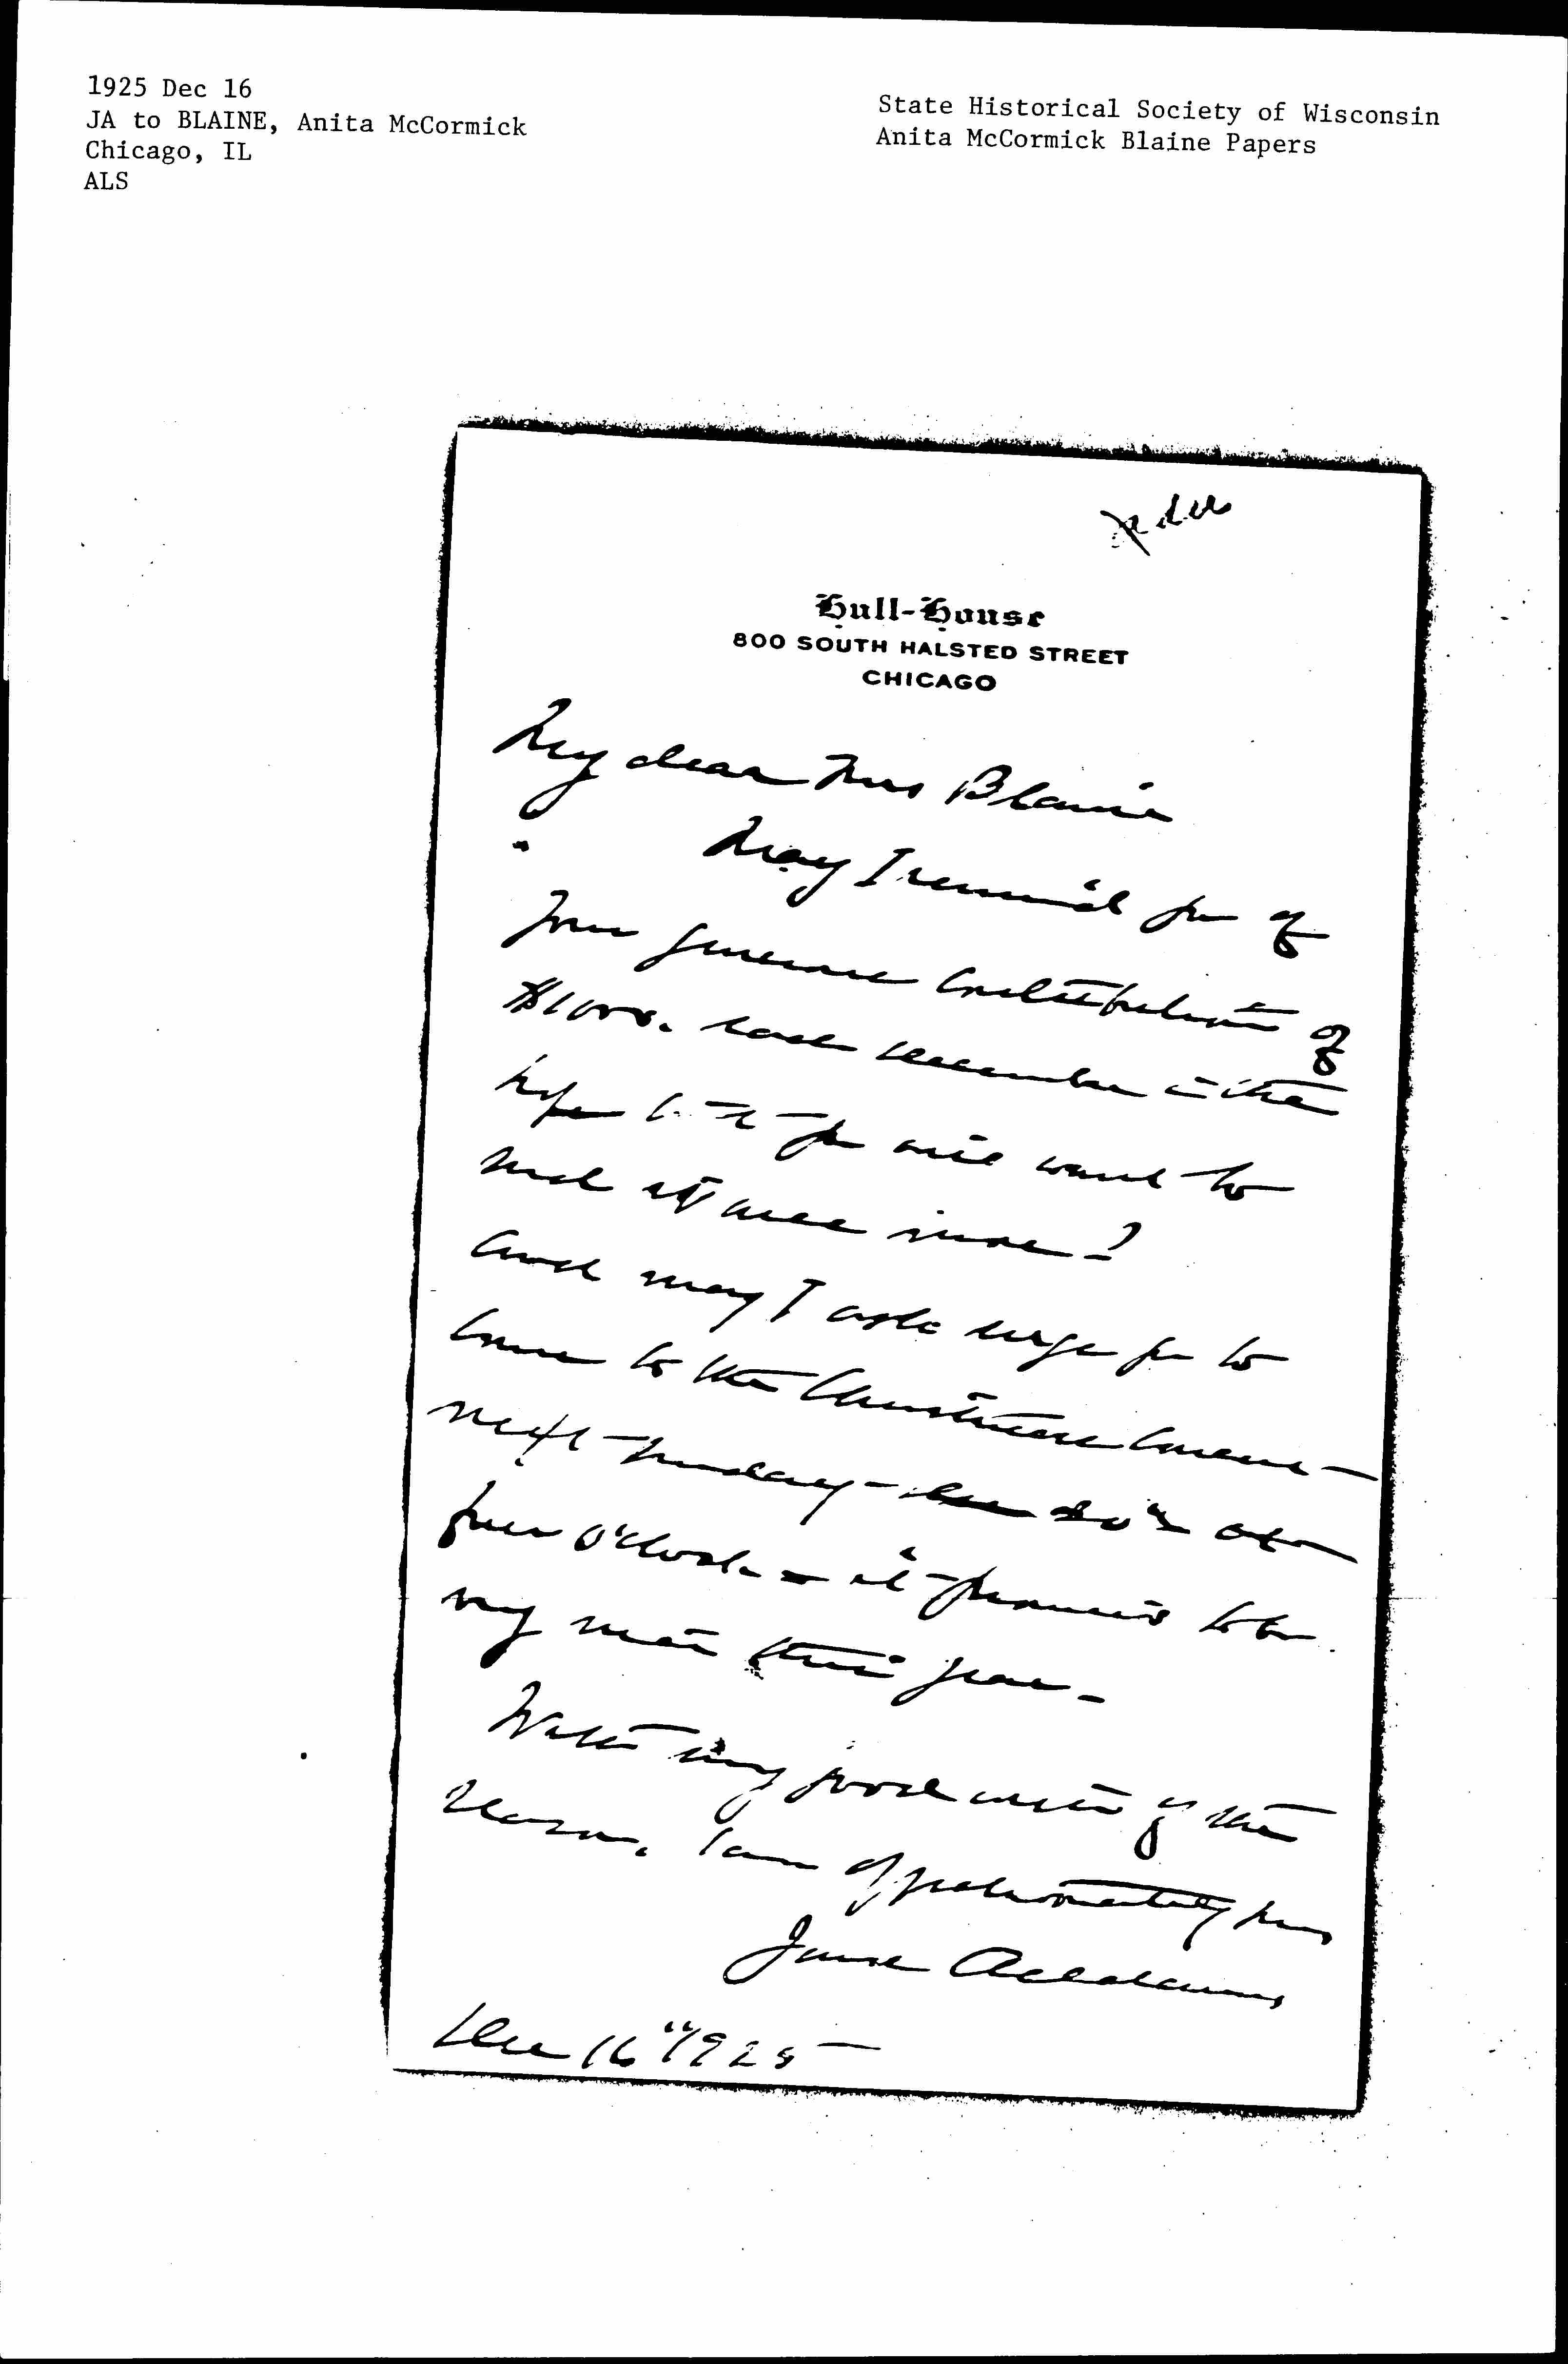 1925 Dec 16
JA to BLAINE, Anita McCormick
Chicago, IL
ALS
State Historical Society of Wisconsin
Anita McCormick Blaine Papers
Hull-House
800 SOUTH HALSTED STREET
CHICAGO
My dear Mrs Blaine
May I remind you of
your generous contribution of
$1000. last December in the
hope that you will want to
send it once more?
And may I urge you to
come to the Christmas Concert
next Sunday - Dec 20" at
four o'clock - it promises to be
very nice this year -
With my good wishes of the
season. I am affectionately yours
Jane Addams
Dec 16" 1925